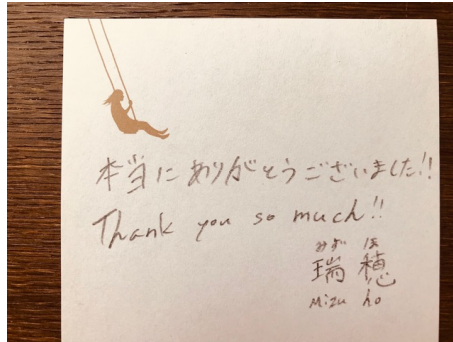 本当にありがとうございました!!
Thank you so much!!
みずほ
瑞穂
Mizu ho